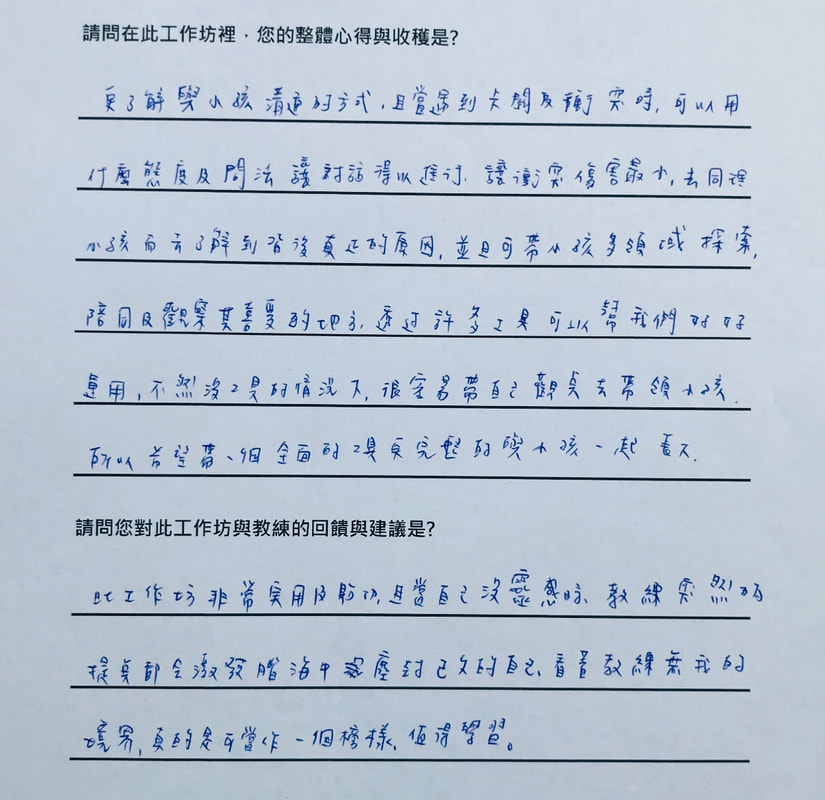 請問在此工作坊裡，您的整體心得與收穫是?
更了解與小孩溝通的方式,且當遇到卡關及衝突時,可以用
什麼態度及問法讓對話得以進行、讓衝突傷害最小,去同理
小孩而去了解到背後真正的原因,並且可帶小孩多領域探索,
陪同及觀察其喜愛的地方,透過許多工具可以幫我們好好
運用,不然沒工具的情況下,很容易帶自己觀點去帶領小孩.
所以希望帶一個全面的工具更完整的與小孩一起長大.
請問您對此工作坊與教練的回饋與建議是?
此工作坊非常實用及貼切,且當自己沒靈感時、教練突然的
提點都會激發腦海中塵封已久的自己、看著教練無我的
境界,真的是可當作一個榜樣、值得學習。